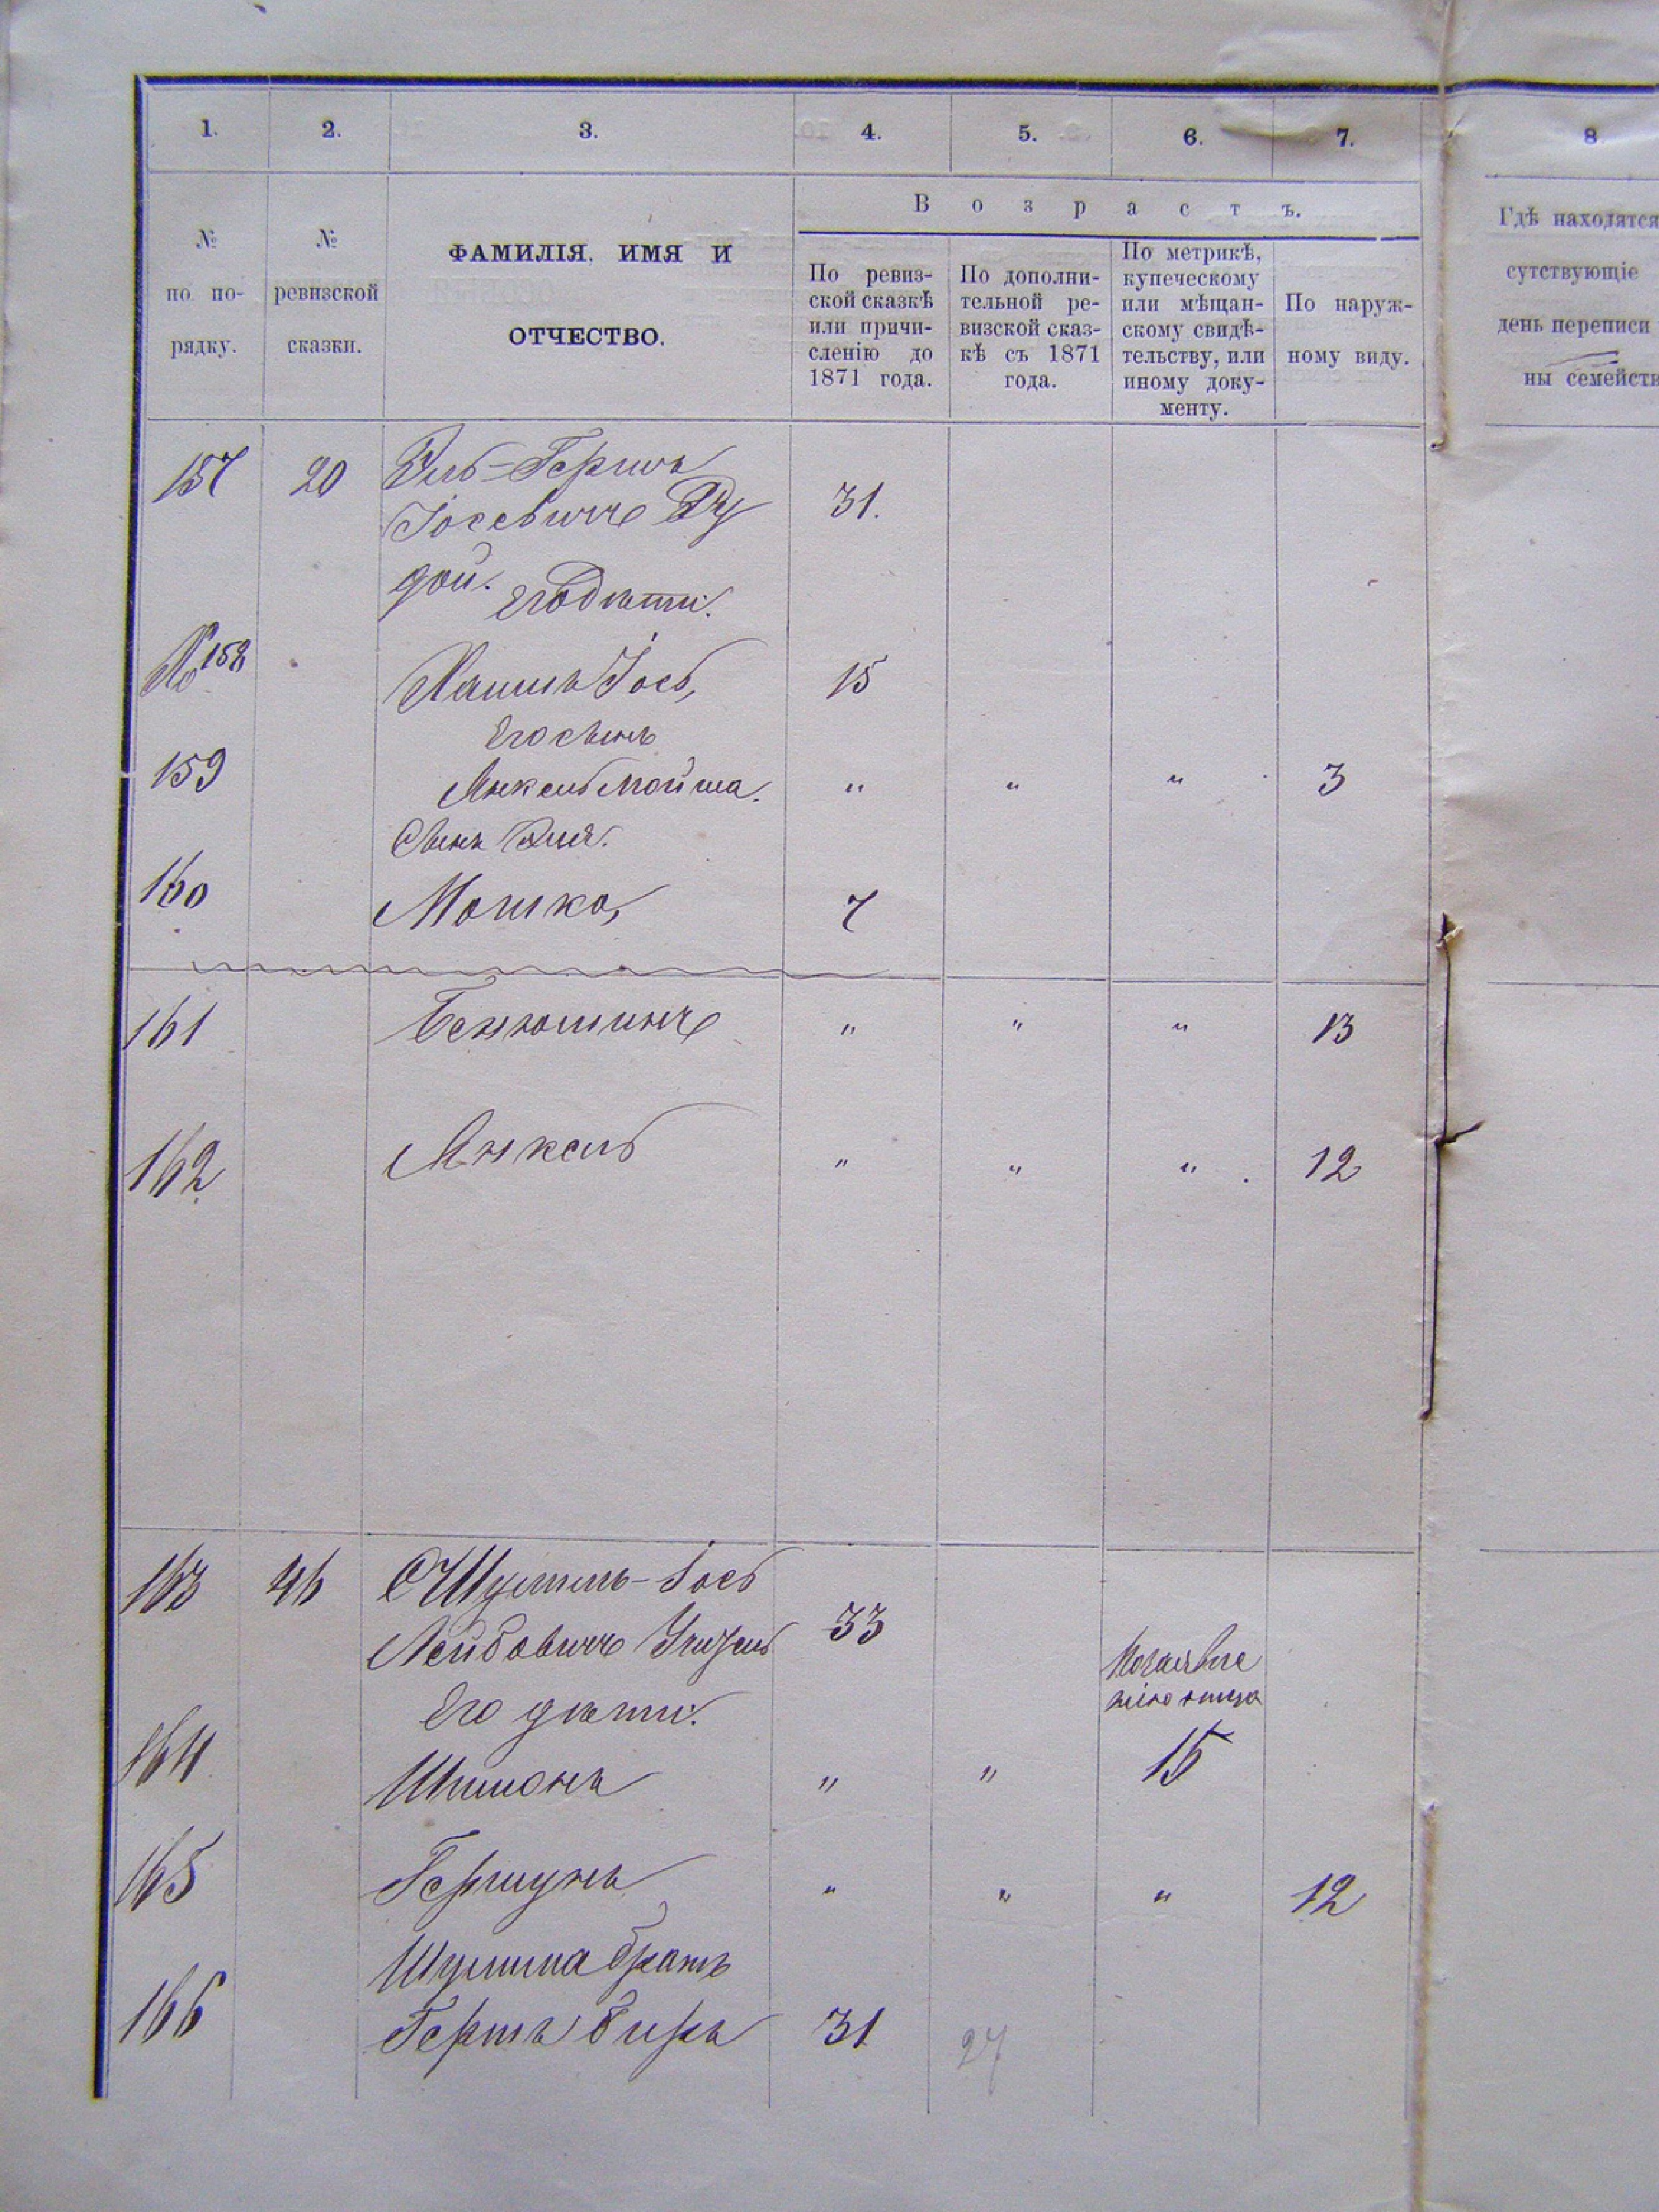 1. 2. 3. 4. 5. 6. 7. 8
№ по по-рядку.
№ ревизской сказки.
ФАМИЛІЯ, ИМЯ И
ОТЧЕСТВО.
Возрастъ.
По ревиз-
ской сказкѣ
или причи-
сленію до
1871 года.
По дополни-
тельной ре-
визской сказ-
кѣ съ 1871
года.
По метрикѣ,
купеческому
или мѣщан-
скому свидѣ-
тельству, или
иному доку-
менту.
По наруж-
ному виду.
Гдѣ находятся
сутствующіе
день переписи
ны семейств
157 20 Эль-Гершъ
Іосевичъ Ду 31.
дой.
Его дѣти.
№ 158 Хаимъ Іось, 15
Его сынъ
159 Янкель Мойша. " " " 3
Сынъ Эля.
160 Мошко, 7
161 Бенюминъ " " " 13
162 Янкель " " " 12
163 46 Шулимъ-Іось
Лейбовичъ 33
Его дѣти.
164 Шимонъ " " 15
165 Гершунъ " " " 12
Шулима братъ
166 Гершъ Беръ 31 27